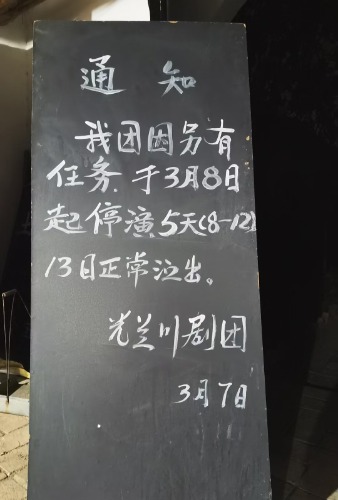 通知
我团因另有
任务于3月8日
起停演5天(8-12)
13日正常泣出。
光兰川剧团
3月7日